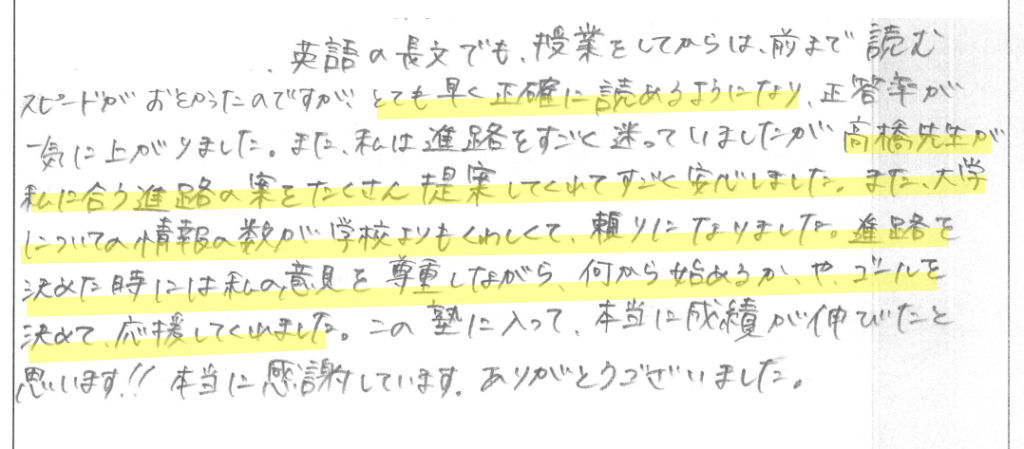 英語の長文でも、授業をしてからは、前まで読む
スピードがおそかったのですが、とても早く正確に読めるようになり、正答率が
一気に上がりました。また、私は進路をすごく迷っていましたが高橋先生が
私に合う進路の案をたくさん提案してくれてすごく安心しました。また、大学
についての情報の数が学校よりもくわしくて、頼りになりました。進路を
決めた時には私の意見を尊重しながら、何から始めるか、や、ゴールを
決めて、応援してくれました。この塾に入って、本当に成績が伸びたと
思います!! 本当に感謝しています。ありがとうございました。